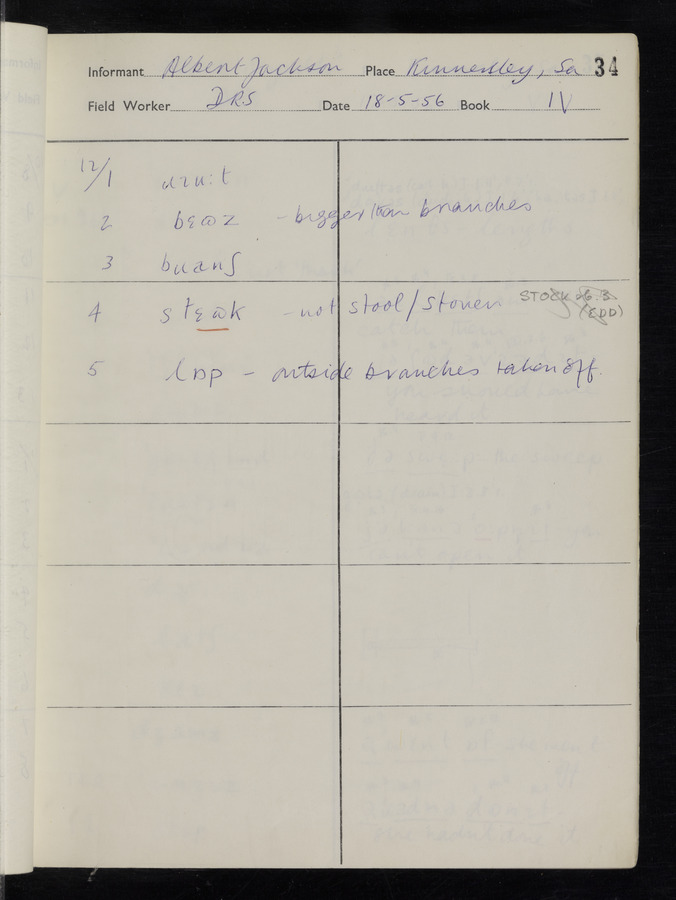 Informant Albert Jackson Place Kinnersley, Sa 34
Field Worker DRS Date 18-5-56 Book IV
12/1
2 bɛɷz - bigger than branches
3
4 stɛɷk - not stool / stoven STOCK sb. 3 (EDD)
5 lɒp - outside branches taken off.